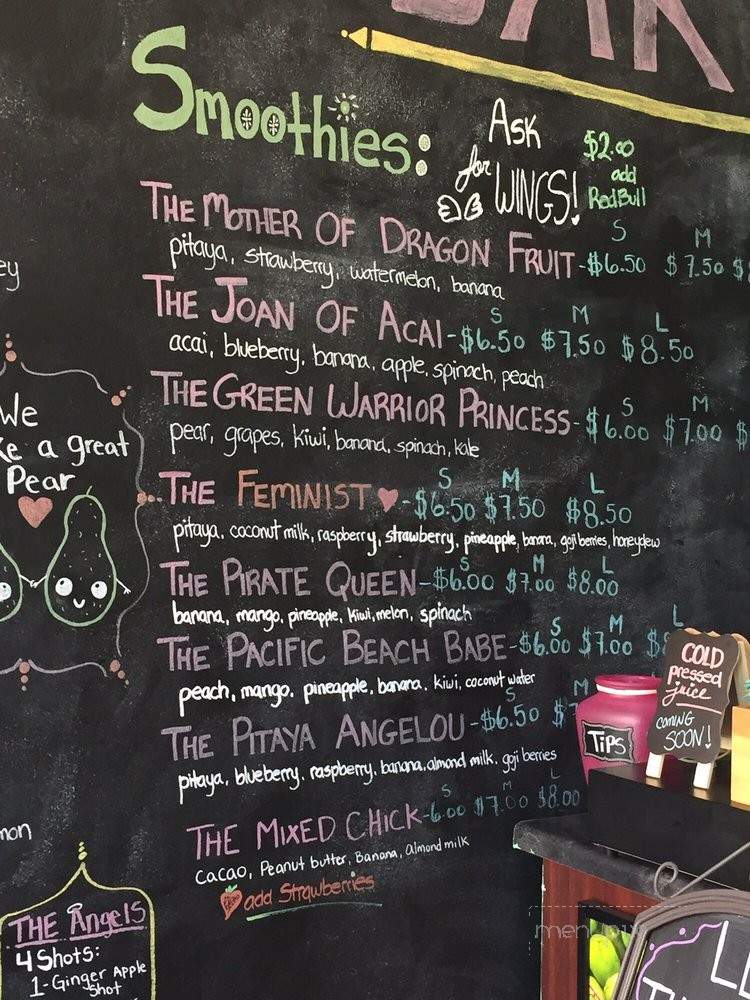 BAR
Smoothies:
Ask
for
WINGS!
$2.00
add
RedBull
THE MOTHER OF DRAGON FRUIT - $6.50 $7.50 $
S M
pitaya, strawberry, watermelon, banana
THE JOAN OF ACAI - $6.50 $7.50 $8.50
S M L
acai, blueberry, banana, apple, spinach, peach
THE GREEN WARRIOR PRINCESS - $6.00 $7.00 $
S M
pear, grapes, kiwi, banana, spinach, kale
THE FEMINIST ♥ - $6.50 $7.50 $8.50
S M L
pitaya, coconut milk, raspberry, strawberry, pineapple, banana, goji berries, honeydew
THE PIRATE QUEEN - $6.00 $7.00 $8.00
S M L
banana, mango, pineapple, kiwi, melon, spinach
THE PACIFIC BEACH BABE - $6.00 $7.00 $8
S M L
peach, mango, pineapple, banana, kiwi, coconut water
THE PITAYA ANGELOU - $6.50 $7
S M
pitaya, blueberry, raspberry, banana, almond milk, goji berries
THE MIXED CHICK - 6.00 $7.00 $8.00
S M L
cacao, Peanut butter, Banana, almond milk
add Strawberries
ey
We
ke a great
Pear
mon
THE Angels
4 Shots:
1- Ginger Apple
Shot
TIPS
COLD
pressed
juice
coming
SOON!